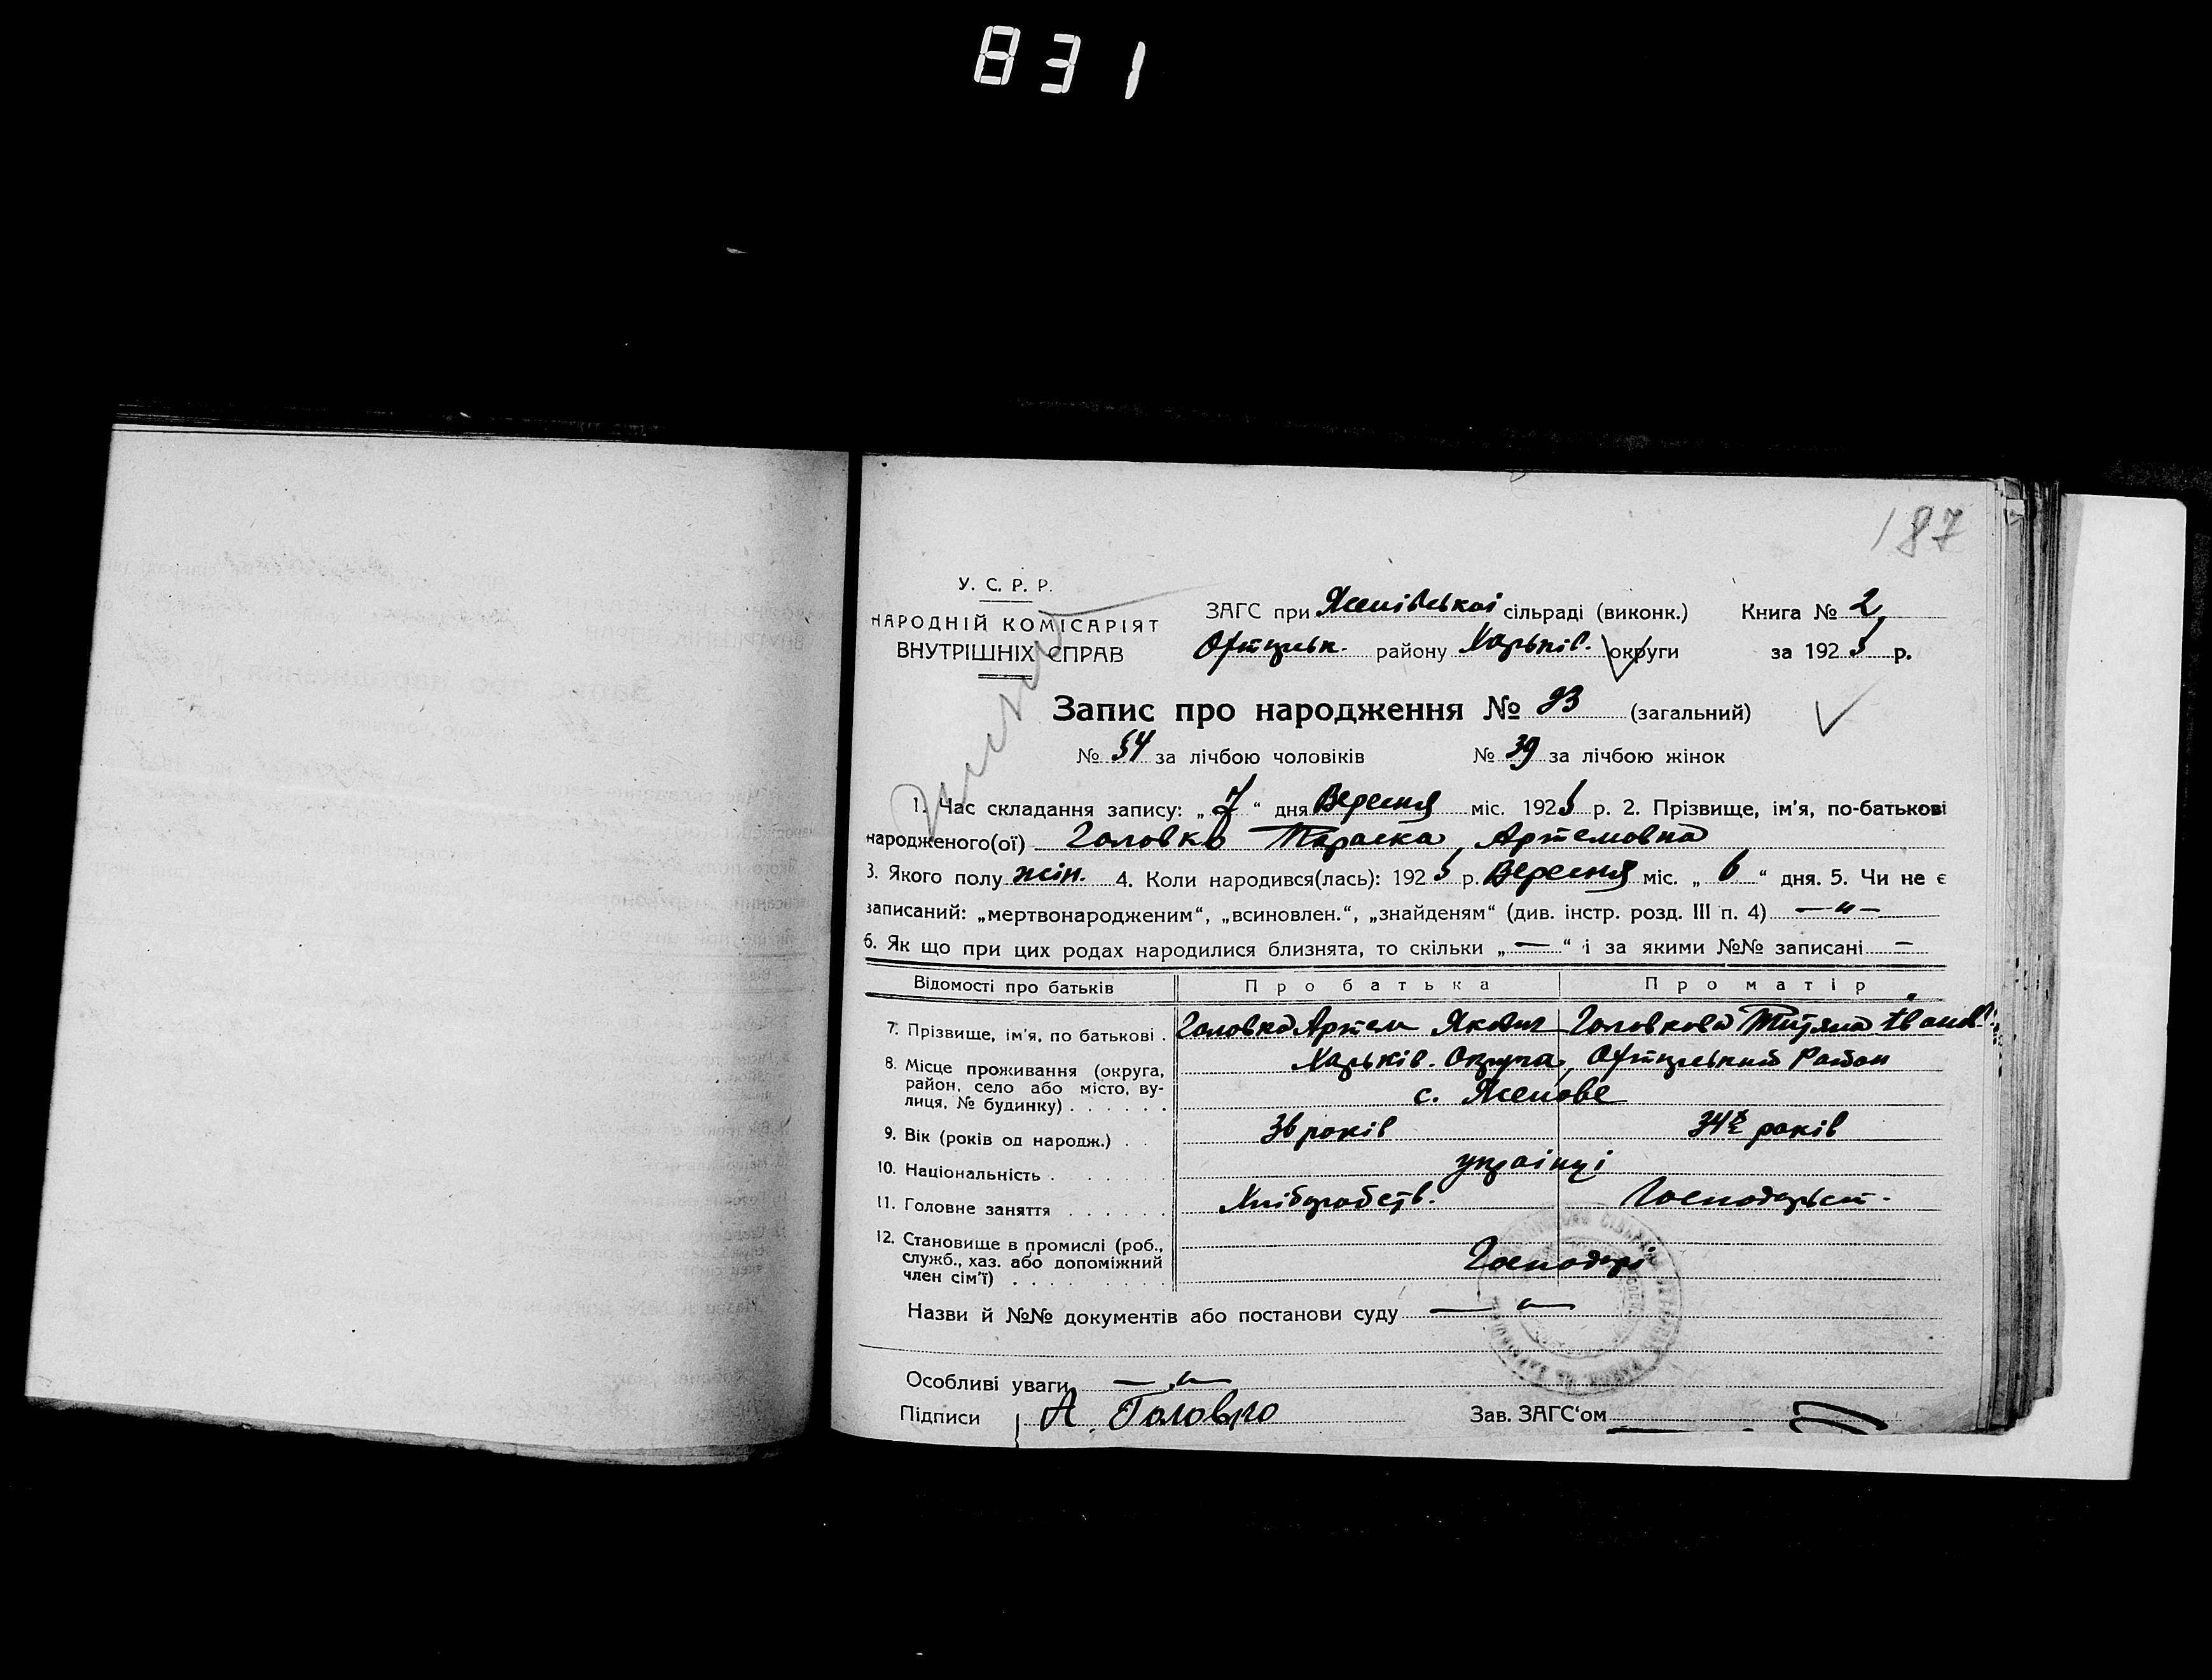 831
187
У. С. Р. Р.
НАРОДНІЙ КОМІСАРІЯТ
ВНУТРІШНІХ СПРАВ
ЗАГС при сільраді (виконк.) Книга № 2
району Харьків. округи за 1925 р.
Запис про народження № 93 (загальний)
№ 54 за лічбою чоловіків № 39 за лічбою жінок
1. Час складання запису: „7“ дня Вересня міс. 1925 р. 2. Прізвище, ім'я, по-батькові
народженого(ої) Головко Артемовна
3. Якого полу жін. 4. Коли народився(лась): 1925 р. Вересня міс. „6“ дня. 5. Чи не є
записаний: „мертвонародженим“, „всиновлен.“, „знайденям“ (див. інстр. розд. III п. 4) — „ —
6. Як що при цих родах народилися близнята, то скільки „—“ і за якими №№ записані —
Відомості про батьків Про батька Про матір
7. Прізвище, ім'я, по батькові . Головко Артем Якович Головкова Іванов.
8. Місце проживання (округа, район, село або місто, вулиця, № будинку) . . . . . . Харьків. Округа, Район
с.
9. Вік (років од народж.) . . 36 років 34 років
10. Національність . . . . . українці
11. Головне заняття . . . . . . Хліборобств. Господарст.
12. Становище в промислі (роб., служб., хаз. або допоміжний член сім'ї) . . . . . . Господарі
Назви й №№ документів або постанови суду — „ —
Особливі уваги — „ —
Підписи А. Головко Зав. ЗАГС'ом